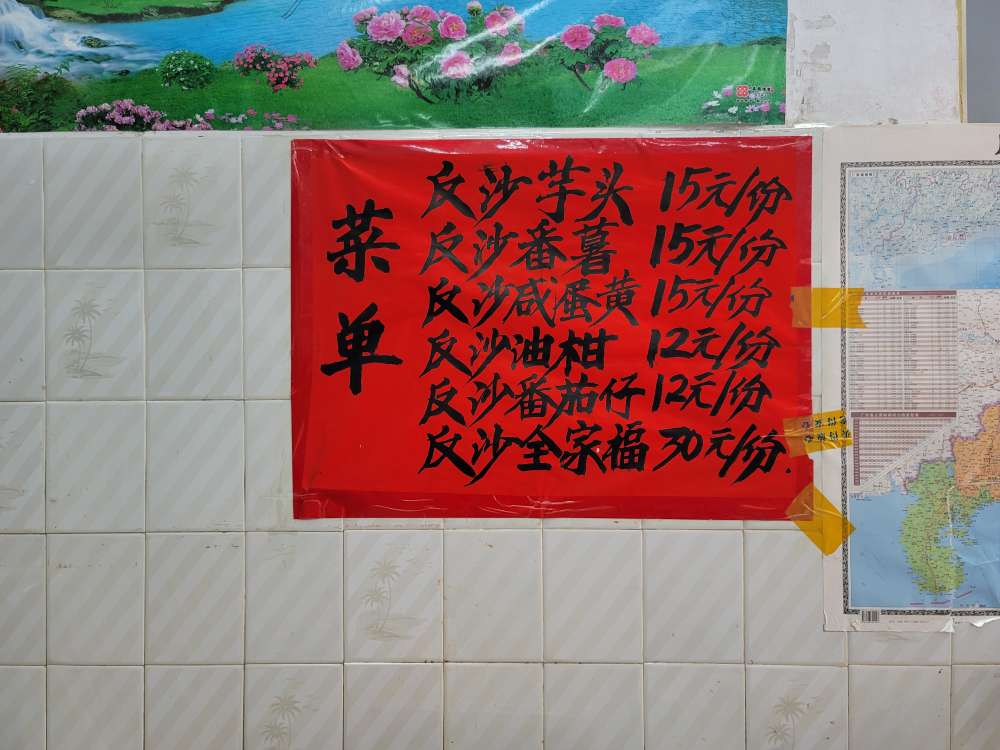 菜单
反沙芋头 15元/份
反沙番薯 15元/份
反沙咸蛋黄 15元/份
反沙油柑 12元/份
反沙番茄仔 12元/份
反沙全家福 30元/份.